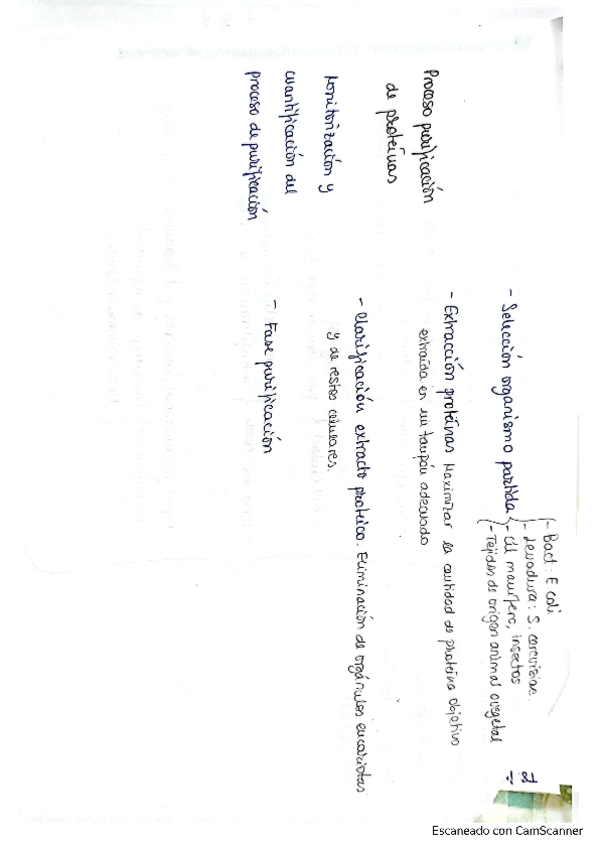 Proceso purificación
de proteínas
Monitorización y
cuantificación del
proceso de purificación
- Bact: E coli
- Levadura: S. cerevisiae.
- Selección organismo partida - Cl mamífero, insectos
- Tejidos de origen animal o vegetal
- Extracción proteínas Maximizar la cantidad de proteína objetivo
extraída en un tampón adecuado
- Clarificación extracto proteico. Eliminación de orgánulos eucariotas
y de restos celulares.
- Fase purificación
Escaneado con CamScanner